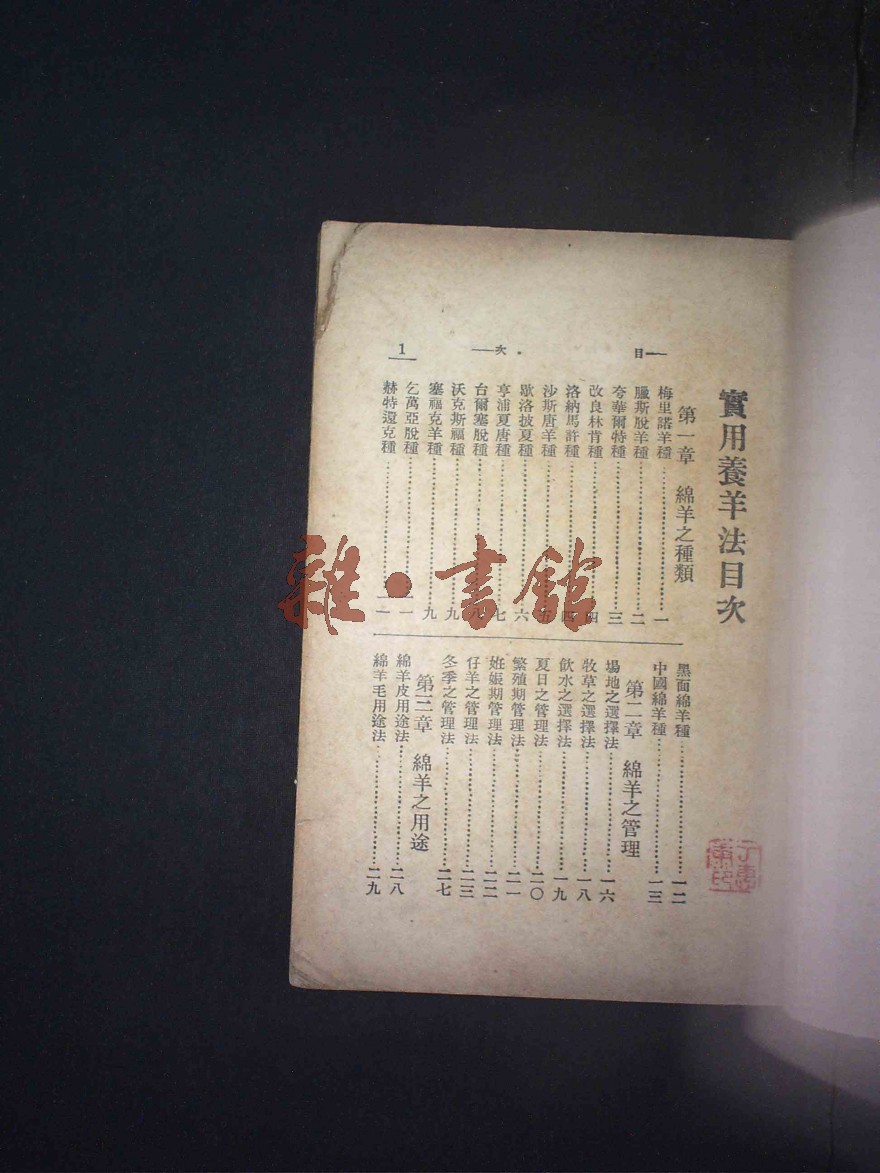 實用養羊法目次
第一章　綿羊之種類
梅里諾羊種……一
臘斯脫羊種……二
夸華爾特種……三
改良林肯種……四
洛納馬許種……四
沙斯唐羊種……五
歇洛披夏種……六
亨浦夏唐種……七
台爾塞脫種
沃克斯福種……九
塞福克羊種……九
乞萬亞脫種……一一
赫特還克種……一一
黑面綿羊種……一二
中國綿羊種……一三
第二章　綿羊之管理
場地之選擇法……一六
牧草之選擇法……一八
飲水之選擇法……一九
夏日之管理法……二〇
繁殖期管理法……二一
妊娠期管理法……二二
仔羊之管理法……二三
冬季之管理法……二七
第三章　綿羊之用途
綿羊皮用途法……二八
綿羊毛用途法……二九
目　次
1
雜·書館